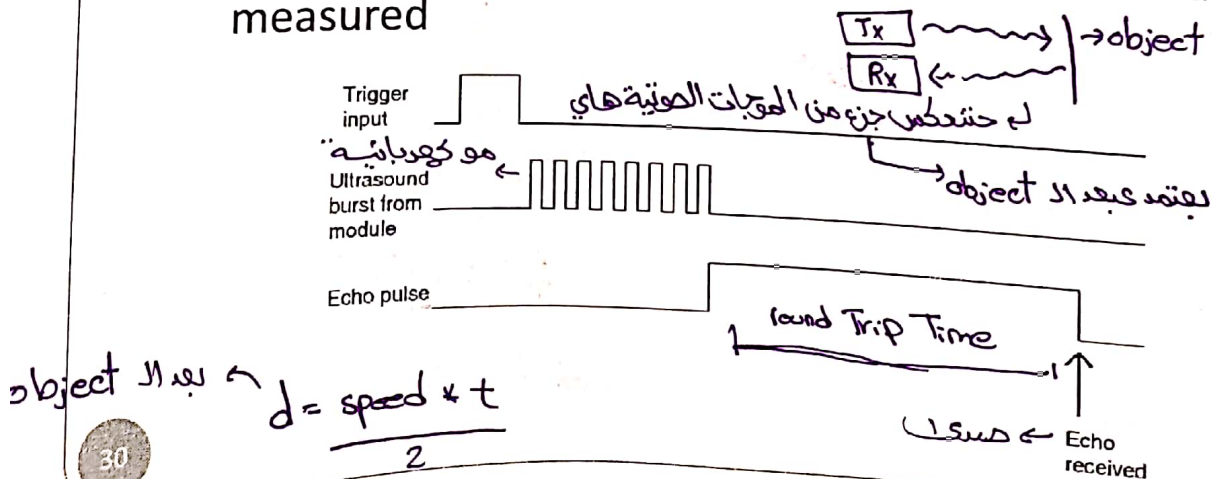 measured
Tx
→ object
Rx
Trigger
input
لم حتنعكس جزء من الموجات الصوتية هاي
مو كهربائية
Ultrasound
burst from
module
يعتمد عبعد الـ object
Echo pulse
round Trip Time
بعد الـ object
d = speed * t
2
Echo
received
30